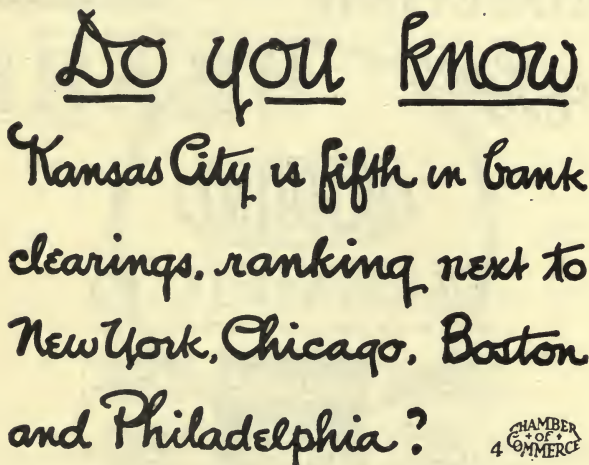 Do you know
Kansas City is fifth in bank
clearings, ranking next to
New York, Chicago, Boston
and Philadelphia?
4 CHAMBER
+ OF +
COMMERCE